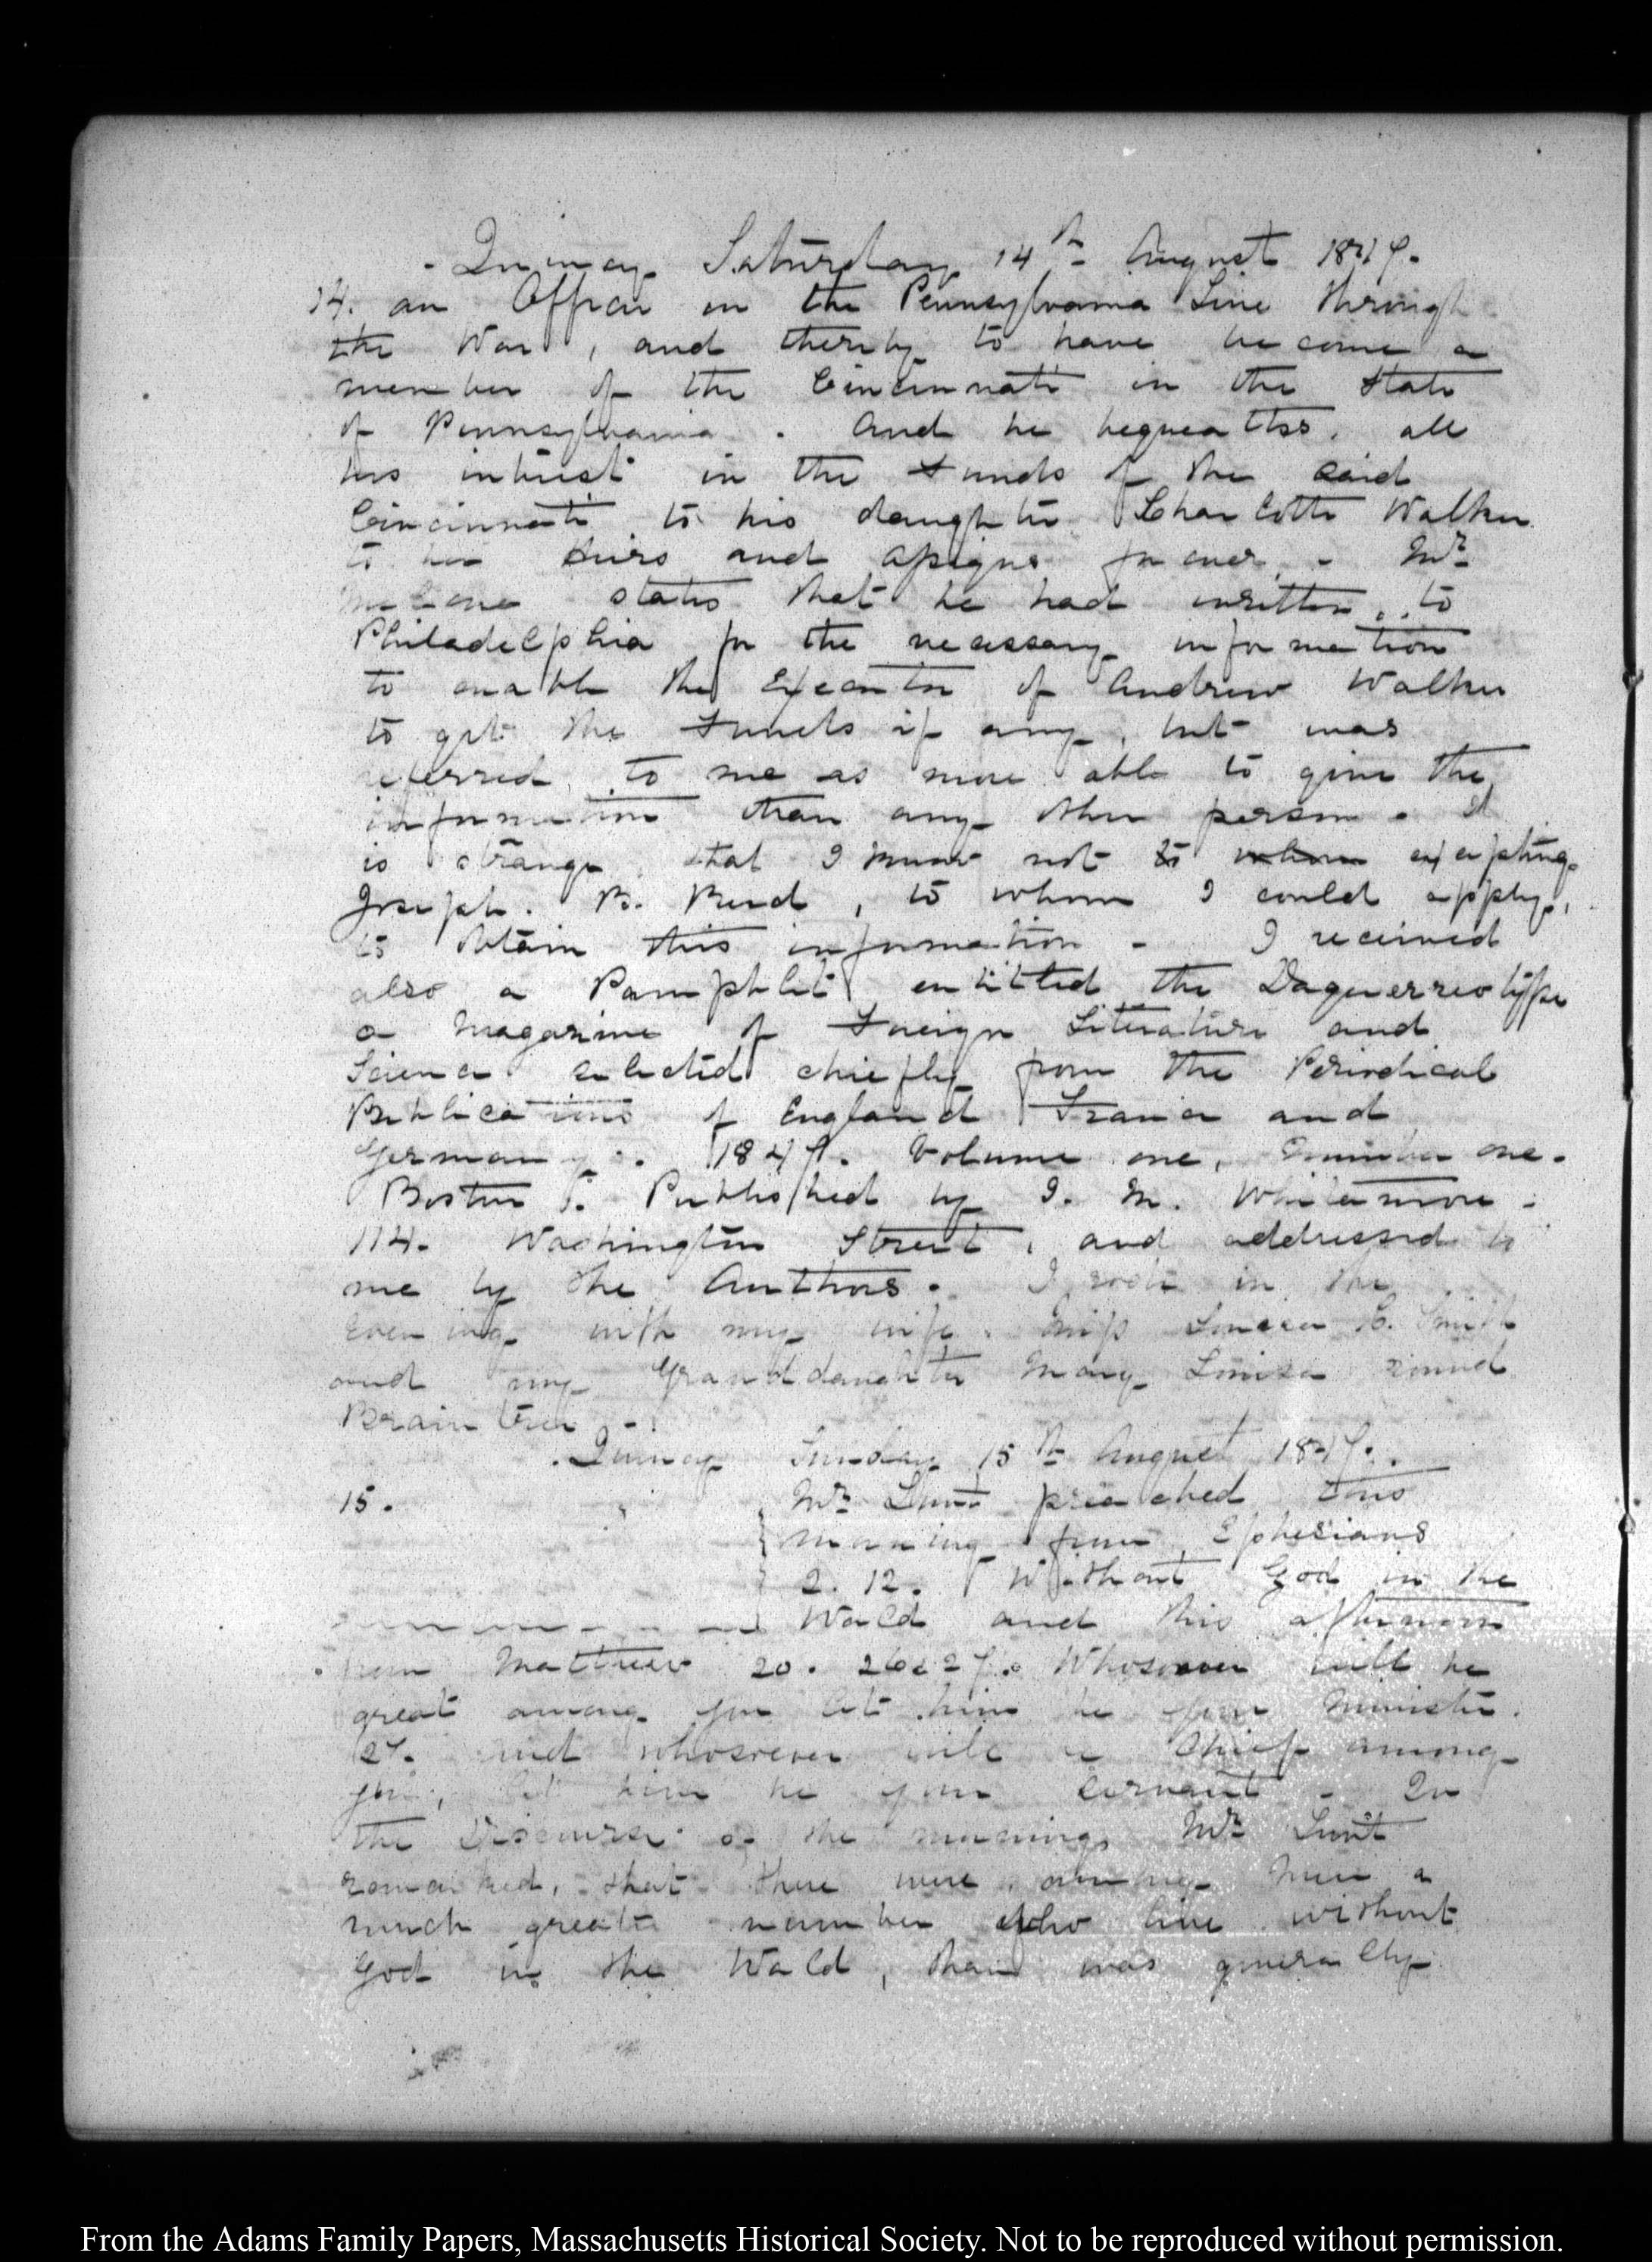 Quincy Saturday 14th August 1847.
14. an Officer in the Pennsylvania Line through
the War, and thereby to have become a
member of the Cincinnati in the State
of Pennsylvania. And he bequeaths, all
his interest in the Funds of the said
Cincinnati to his daughter Charlotte Walker
to her Heirs and Assigns forever. - Mr
states that he had written to
Philadelphia for the necessary information
to enable the Executor of Andrew Walker
to get the Funds if any, but was
referred to me as more able to give the
information than any other person. It
is strange that I know not to whom excepting
Joseph. B. , to whom I could apply,
to obtain this information - I received
also a Pamphlet entitled the Daguerreotype
a Magazine of Foreign Literature and
Science selected chiefly from the Periodical
Publications of England France and
Germany. 1847. Volume one, Number one.
Boston. Published by J. M. Whitemore.
114. Washington Street, and addressed to
me by the Authors. I rode in the
Evening with my wife. Miss Louisa C. Smith
and my Granddaughter Mary Louisa round
Braintree -.
Quincy Sunday 15th August 1847.
15. Mr Lunt preached this
morning from Ephesians
2. 12. Without God in the
World and this afternoon
from Matthew 20. 26 & 27. Whosoever will be
great among you let him be your Minister.
27. and whosoever will be Chief among
you, let him be your servant - In
the Discourse of the morning, Mr Lunt
remarked, that there were among Men a
much greater number who live without
God in the World, than was generally
From the Adams Family Papers, Massachusetts Historical Society. Not to be reproduced without permission.